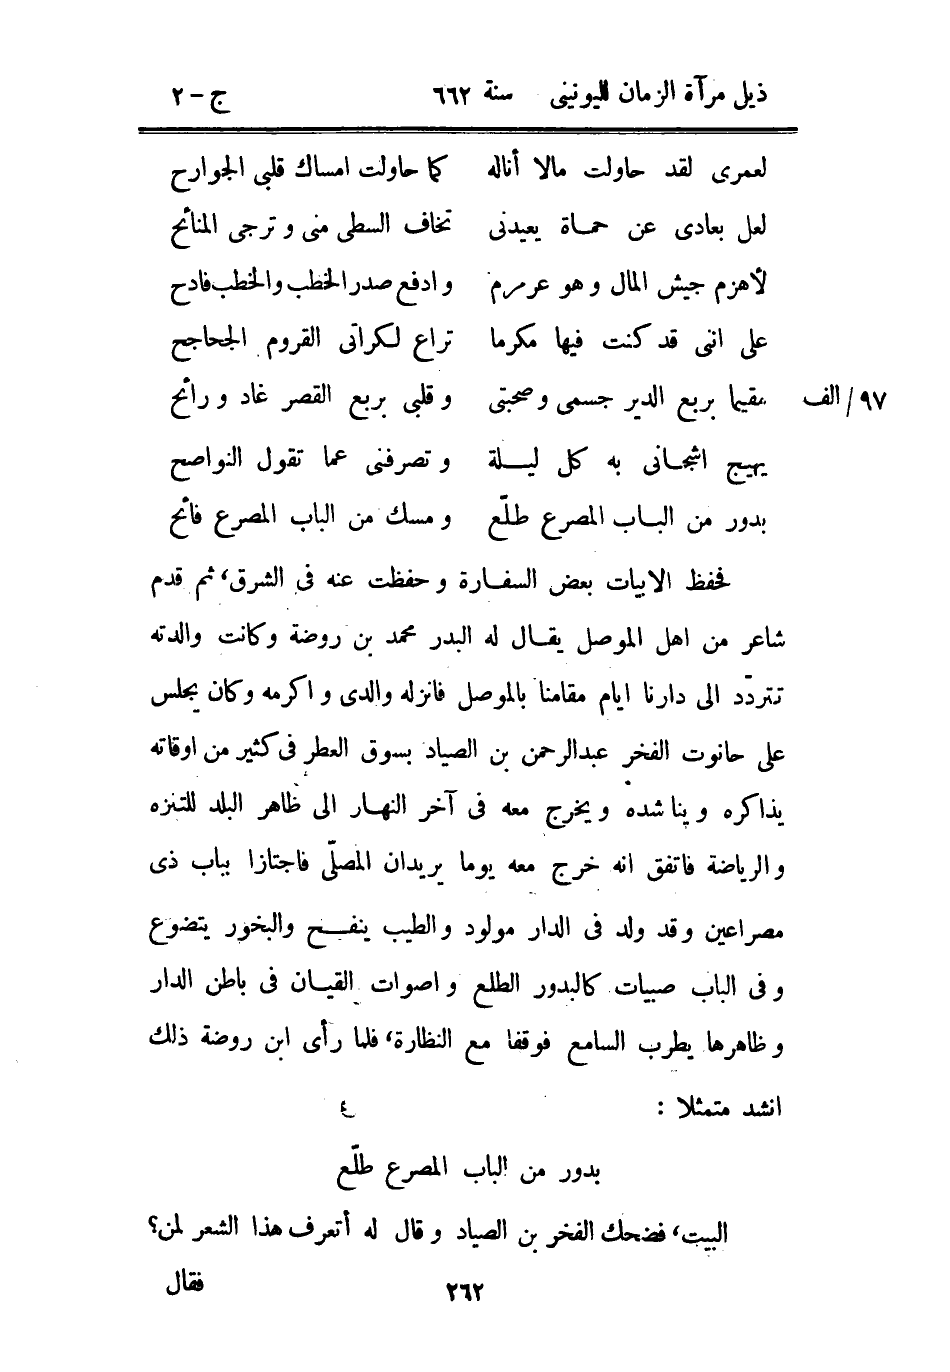 ذيل مرآة الزمان لليونينى سنة ٦٦٢ ج-٢
لعمرى لقد حاولت مالا أناله كما حاولت امساك قلبى الجوارح
لعل بعادى عن حماة يعيدنى تخاف السطى منى و ترجى المنائح
لأهزم جيش المال و هو عرمرم و ادفع صدر الخطب والخطب فادح
على اننى قد كنت فيها مكرما تراع لكراتى القروم الجحاجح
٩٧/ الف مقيما بربع الدير جسمى و صحبتى و قلبى بربع القصر غاد و رائح
يهيج اشجانى به كل ليلة و تصرفنى عما تقول النواصح
بدور من الباب المصرع طلّع و مسك من الباب المصرع فائح
فحفظ الابيات بعض السفارة و حفظت عنه فى الشرق، ثم قدم
شاعر من اهل الموصل يقال له البدر محمد بن روضة و كانت والدته
تتردّد الى دارنا ايام مقامنا بالموصل فانزله والدى و اكرمه وكان يجلس
على حانوت الفخر عبدالرحمن بن الصياد بسوق العطر فى كثير من اوقاته
يذاكره و يناشده و يخرج معه فى آخر النهار الى ظاهر البلد للتنزه
و الرياضة فاتفق انه خرج معه يوما يريدان المصلّى فاجتازا بباب ذى
مصراعين و قد ولد فى الدار مولود و الطيب ينفح والبخور يتضوع
و فى الباب صبيات كالبدور الطلع و اصوات القيان فى باطن الدار
و ظاهرها يطرب السامع فوقفا مع النظارة، فلما رأى ابن روضة ذلك
انشد متمثلا :
بدور من الباب المصرع طلّع
البيت، فضحك الفخر بن الصياد و قال له أتعرف هذا الشعر لمن؟
فقال
٢٦٢